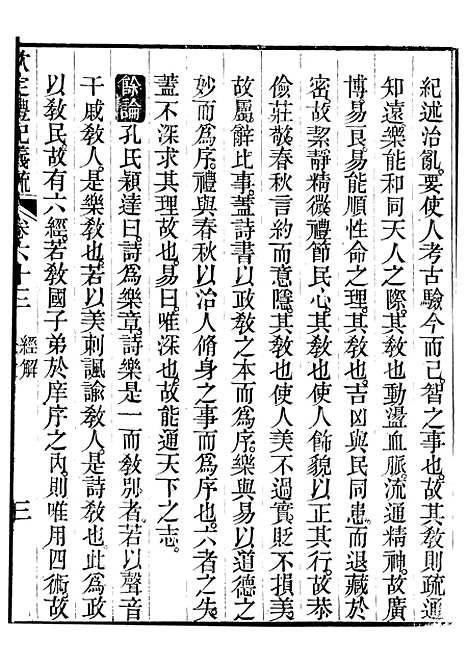 紀述治亂。要使人考古驗今而已。智之事也。故其敎則疏通
知遠。樂能和同天人之際。其敎也動盪血脈。流通精神。故廣
博易良。易能順性命之理。其敎也。吉凶與民同患。而退藏於
密。故潔靜精微。禮節民心。其敎也使人飾貌以正其行。故恭
儉莊敬。春秋言約而意隱。其敎也使人美不過實。貶不損美。
故屬辭比事。蓋詩書以政敎之本而爲序。樂與易以道德之
妙而爲序。禮與春秋以治人脩身之事而爲序也。六者之失。
蓋不深求其理故也。易曰。唯深也。故能通天下之志。
餘論孔氏穎達曰。詩爲樂章。詩樂是一而敎別者。若以聲音
干戚敎人。是樂敎也。若以美刺諷諭敎人。是詩敎也。此爲政
以敎民。故有六經。若敎國子弟於庠序之內。則唯用四術。故
欽定禮記義疏 卷六十三 經解 三